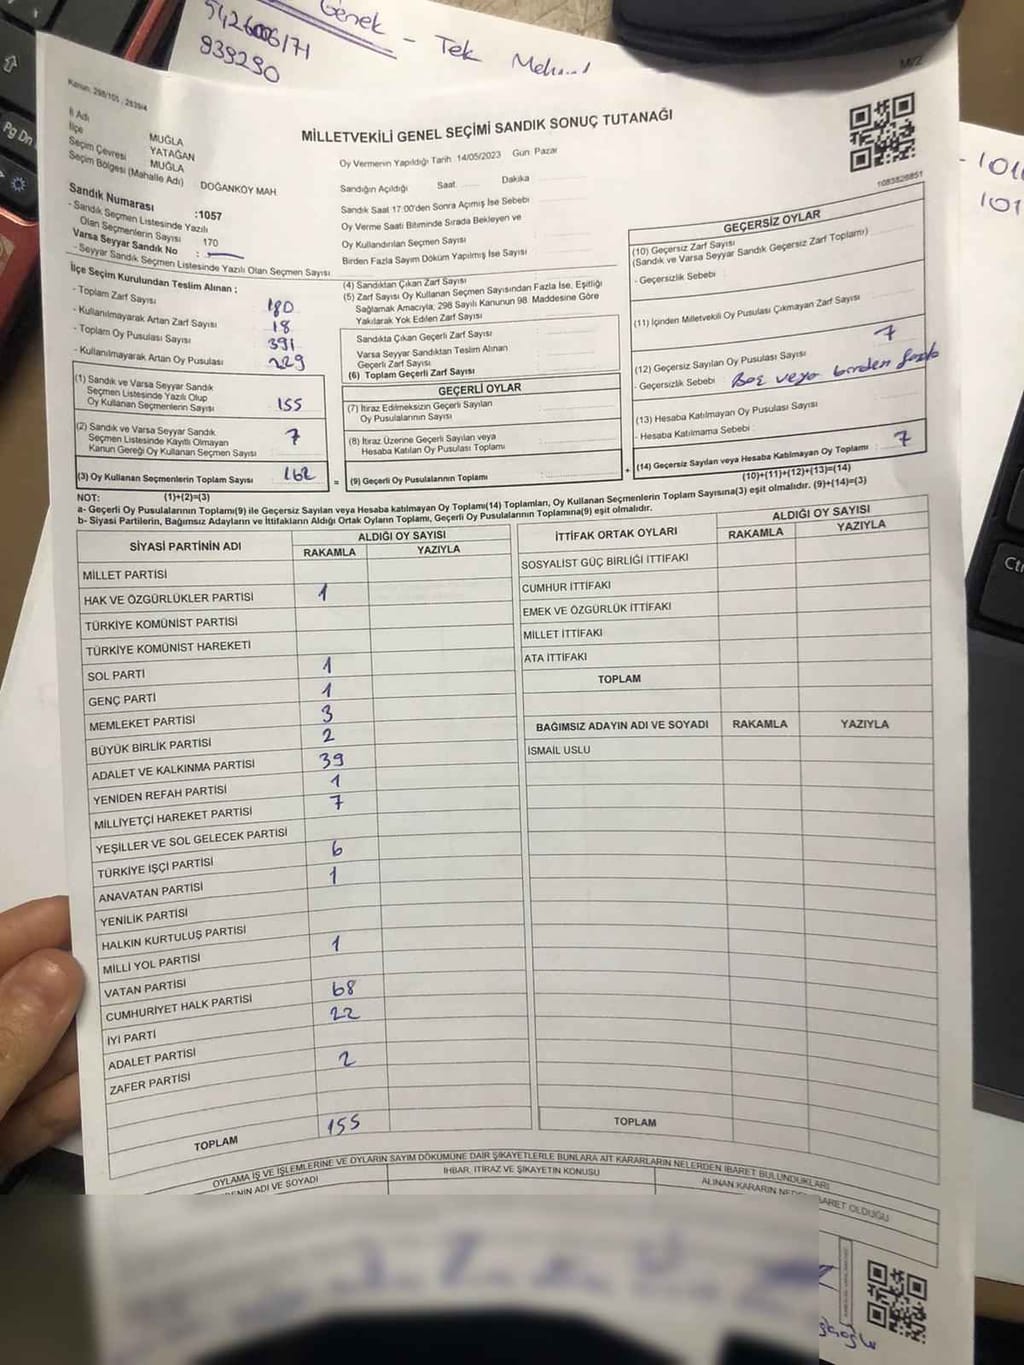 Genek - Tek
5426006171
939290
M/2
Kanun: 298/105, 2839/4
İl Adı MUĞLA
İlçe YATAĞAN
Seçim Çevresi MUĞLA
Seçim Bölgesi (Mahalle Adı) DOĞANKÖY MAH.
MİLLETVEKİLİ GENEL SEÇİMİ SANDIK SONUÇ TUTANAĞI
1083826851
Sandık Numarası :1057
- Sandık Seçmen Listesinde Yazılı
Olan Seçmenlerin Sayısı 170
Varsa Seyyar Sandık No :
- Seyyar Sandık Seçmen Listesinde Yazılı Olan Seçmen Sayısı
Oy Vermenin Yapıldığı Tarih 14/05/2023 Gün: Pazar
Sandığın Açıldığı Saat Dakika
Sandık Saat 17:00'den Sonra Açımış İse Sebebi
Oy Verme Saati Bitiminde Sırada Bekleyen ve
Oy Kullandırılan Seçmen Sayısı
Birden Fazla Sayım Döküm Yapılmış İse Sayısı
İlçe Seçim Kurulundan Teslim Alınan :
- Toplam Zarf Sayısı 180
- Kullanılmayarak Artan Zarf Sayısı 18
- Toplam Oy Pusulası Sayısı 391
- Kullanılmayarak Artan Oy Pusulası 229
(1) Sandık ve Varsa Seyyar Sandık
Seçmen Listesinde Yazılı Olup
Oy Kullanan Seçmenlerin Sayısı 155
(2) Sandık ve Varsa Seyyar Sandık
Seçmen Listesinde Kayıtlı Olmayan
Kanun Gereği Oy Kullanan Seçmen Sayısı : 7
(3) Oy Kullanan Seçmenlerin Toplam Sayısı 162
(4) Sandıktan Çıkan Zarf Sayısı
(5) Zarf Sayısı Oy Kullanan Seçmen Sayısından Fazla İse, Eşitliği
Sağlamak Amacıyla, 298 Sayılı Kanunun 98. Maddesine Göre
Yakılarak Yok Edilen Zarf Sayısı
Sandıkta Çıkan Geçerli Zarf Sayısı
Varsa Seyyar Sandıktan Teslim Alınan
Geçerli Zarf Sayısı
(6) Toplam Geçerli Zarf Sayısı
GEÇERLİ OYLAR
(7) İtiraz Edilmeksizin Geçerli Sayılan
Oy Pusulalarının Sayısı
(8) İtiraz Üzerine Geçerli Sayılan veya
Hesaba Katılan Oy Pusulası Toplamı
= (9) Geçerli Oy Pusulalarının Toplamı +
GEÇERSİZ OYLAR
(10) Geçersiz Zarf Sayısı
(Sandık ve Varsa Seyyar Sandık Geçersiz Zarf Toplamı)
- Geçersizlik Sebebi :
(11) İçinden Milletvekili Oy Pusulası Çıkmayan Zarf Sayısı
(12) Geçersiz Sayılan Oy Pusulası Sayısı 7
- Geçersizlik Sebebi : Boş veya birden fazla
(13) Hesaba Katılmayan Oy Pusulası Sayısı
- Hesaba Katılmama Sebebi :
(14) Geçersiz Sayılan veya Hesaba Katılmayan Oy Toplamı : 7
(10)+(11)+(12)+(13)=(14)
NOT: (1)+(2)=(3)
a- Geçerli Oy Pusulalarının Toplamı(9) ile Geçersiz Sayılan veya Hesaba katılmayan Oy Toplamı(14) Toplamları, Oy Kullanan Seçmenlerin Toplam Sayısına(3) eşit olmalıdır. (9)+(14)=(3)
b- Siyasi Partilerin, Bağımsız Adayların ve İttifakların Aldığı Ortak Oyların Toplamı, Geçerli Oy Pusulalarının Toplamına(9) eşit olmalıdır.
SİYASİ PARTİNİN ADI ALDIĞI OY SAYISI
RAKAMLA YAZIYLA
MİLLET PARTİSİ
HAK VE ÖZGÜRLÜKLER PARTİSİ 1
TÜRKİYE KOMÜNİST PARTİSİ
TÜRKİYE KOMÜNİST HAREKETİ
SOL PARTİ 1
GENÇ PARTİ 1
MEMLEKET PARTİSİ 3
BÜYÜK BİRLİK PARTİSİ 2
ADALET VE KALKINMA PARTİSİ 39
YENİDEN REFAH PARTİSİ 1
MİLLİYETÇİ HAREKET PARTİSİ 7
YEŞİLLER VE SOL GELECEK PARTİSİ
TÜRKİYE İŞÇİ PARTİSİ 6
ANAVATAN PARTİSİ 1
YENİLİK PARTİSİ
HALKIN KURTULUŞ PARTİSİ
MİLLİ YOL PARTİSİ 1
VATAN PARTİSİ
CUMHURİYET HALK PARTİSİ 68
İYİ PARTİ 22
ADALET PARTİSİ
ZAFER PARTİSİ 2
TOPLAM 155
İTTİFAK ORTAK OYLARI ALDIĞI OY SAYISI
RAKAMLA YAZIYLA
SOSYALİST GÜÇ BİRLİĞİ İTTİFAKI
CUMHUR İTTİFAKI
EMEK VE ÖZGÜRLÜK İTTİFAKI
MİLLET İTTİFAKI
ATA İTTİFAKI
TOPLAM
BAĞIMSIZ ADAYIN ADI VE SOYADI RAKAMLA YAZIYLA
İSMAİL USLU
TOPLAM
OYLAMA İŞ VE İŞLEMLERİNE VE OYLARIN SAYIM DÖKÜMÜNE DAİR ŞİKAYETLERLE BUNLARA AİT KARARLARIN NELERDEN İBARET BULUNDUKLARI
ADI VE SOYADI İHBAR, İTİRAZ VE ŞİKAYETİN KONUSU ALINAN KARARIN İBARET OLDUĞU
Pg Dn